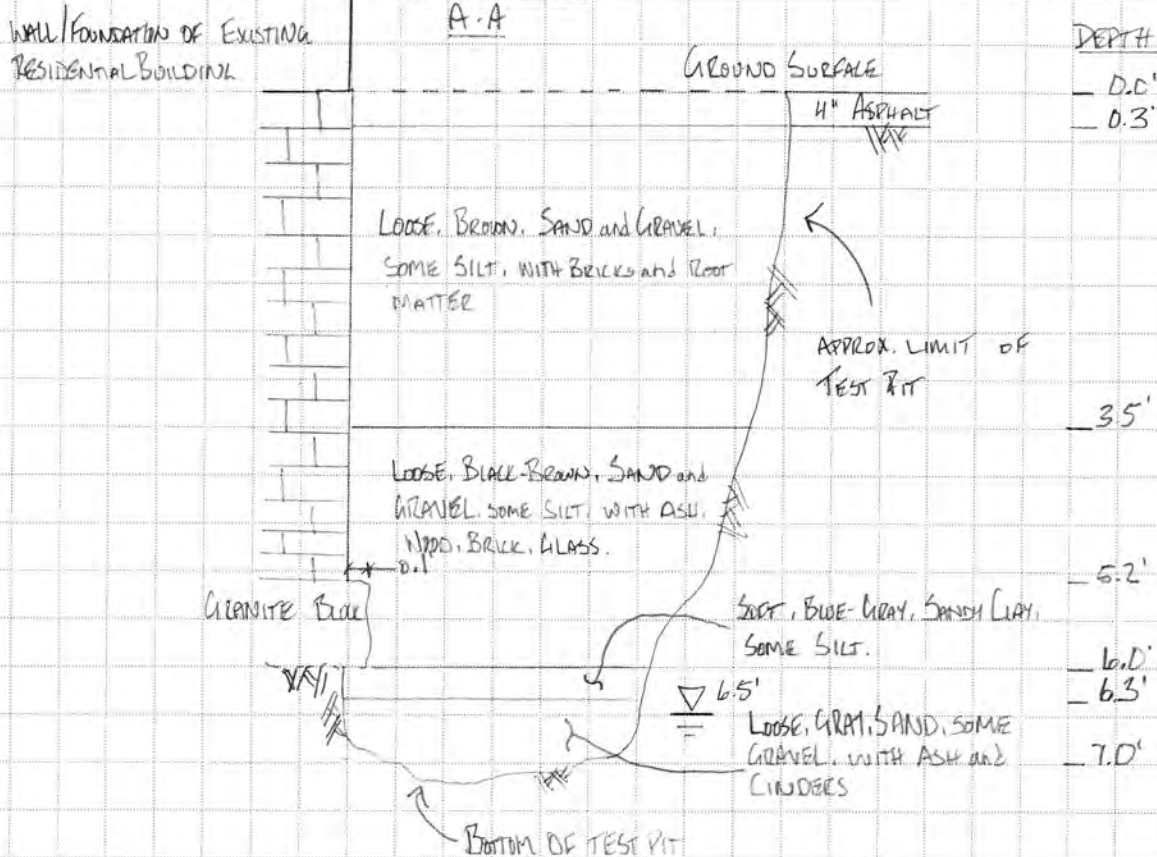 WALL/FOUNDATION OF EXISTING
RESIDENTIAL BUILDING
A-A
GROUND SURFACE
DEPTH
0.0'
4" ASPHALT
0.3'
LOOSE, BROWN, SAND and GRAVEL,
SOME SILT, WITH BRICKS and ROOT
MATTER
APPROX. LIMIT OF
TEST PIT
3.5'
LOOSE, BLACK-BROWN, SAND and
GRAVEL, SOME SILT, WITH ASH,
WOOD, BRICK, GLASS.
0.1'
5.2'
GRANITE BLOCK
SOFT, BLUE-GRAY, SANDY CLAY,
SOME SILT.
6.0'
6.3'
6.5'
LOOSE, GRAY, SAND, SOME
GRAVEL, WITH ASH and
CINDERS
7.0'
BOTTOM OF TEST PIT